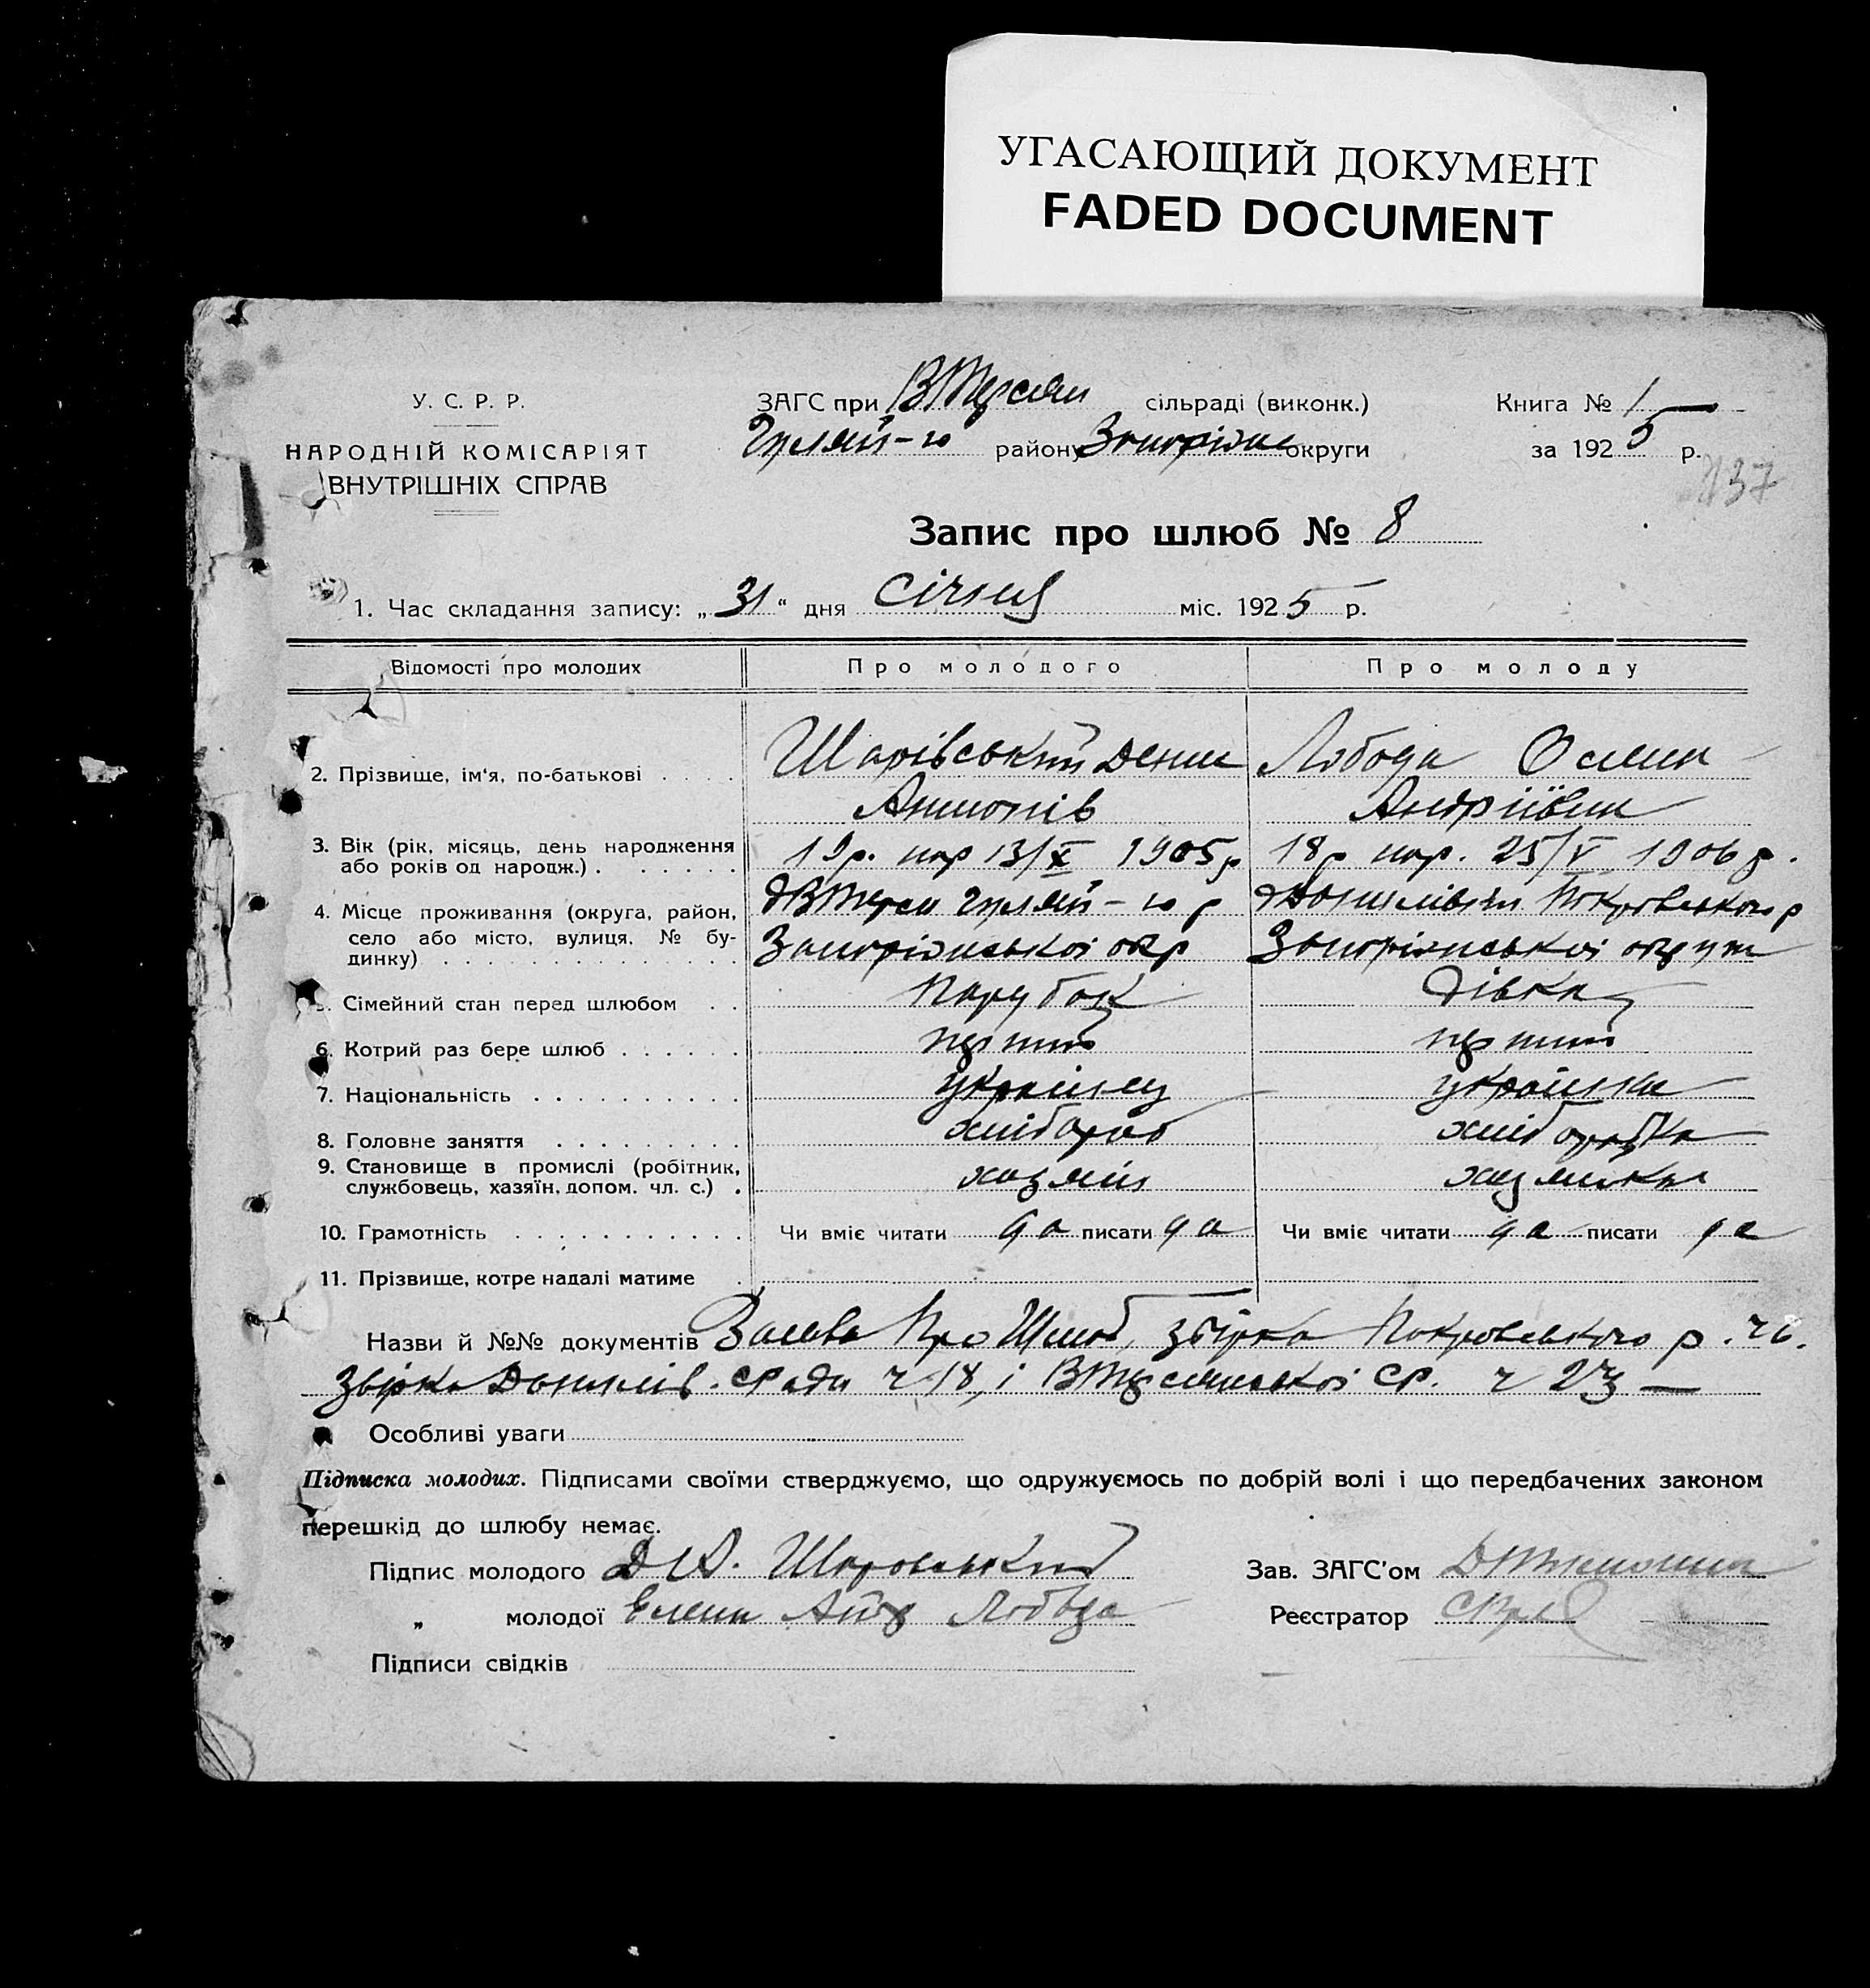 УГАСАЮЩИЙ ДОКУМЕНТ
FADED DOCUMENT
У. С. Р. Р.
НАРОДНІЙ КОМІСАРІЯТ
ВНУТРІШНІХ СПРАВ
ЗАГС при ВТерсян сільраді (виконк.)
Гуляй-го району Запоріжс округи
Книга № 1
за 1925 р.
137
Запис про шлюб № 8
1. Час складання запису: „31“ дня Січня міс. 1925 р.
Відомості про молодих Про молодого Про молоду
2. Прізвище, ім‘я, по-батькові . . . . Шарівський Денис Лобода Олена
Антонів Андріївна
3. Вік (рік, місяць, день народження 19р. нар 13/X 1905р 18р нар. 25/V 1906р.
або років од народж.) . . . . . .
4. Місце проживання (округа, район, ВТерси Гуляй-го р Покровського р
село або місто, вулиця, № бу- Запоріжської окр Запоріжської округи
динку) . . . . . . . . . . . . . .
5. Сімейний стан перед шлюбом . . Парубок Дівка
6. Котрий раз бере шлюб . . . . . . перший перший
7. Національність . . . . . . . . . . українец українка
8. Головне заняття . . . . . . . . . хлібороб хліборобка
9. Становище в промислі (робітник, хазяїн хазяйка
службовець, хазяїн, допом. чл. с.) .
10. Грамотність . . . . . . . . . . . Чи вміє читати да писати да Чи вміє читати да писати да
11. Прізвище, котре надалі матиме .
Назви й №№ документів Заява Про Шлюб, збірка Покровського р. ч 6.
Збірка Данилів. Сради ч 18, і ВТерсянської СР. ч 23 —
Особливі уваги
Підписка молодих. Підписами своїми стверджуємо, що одружуємось по добрій волі і що передбачених законом
перешкід до шлюбу немає.
Підпис молодого Д А. Шаровський Зав. ЗАГС'ом
„ молодої Елена Андр Лобода Реєстратор
Підписи свідків